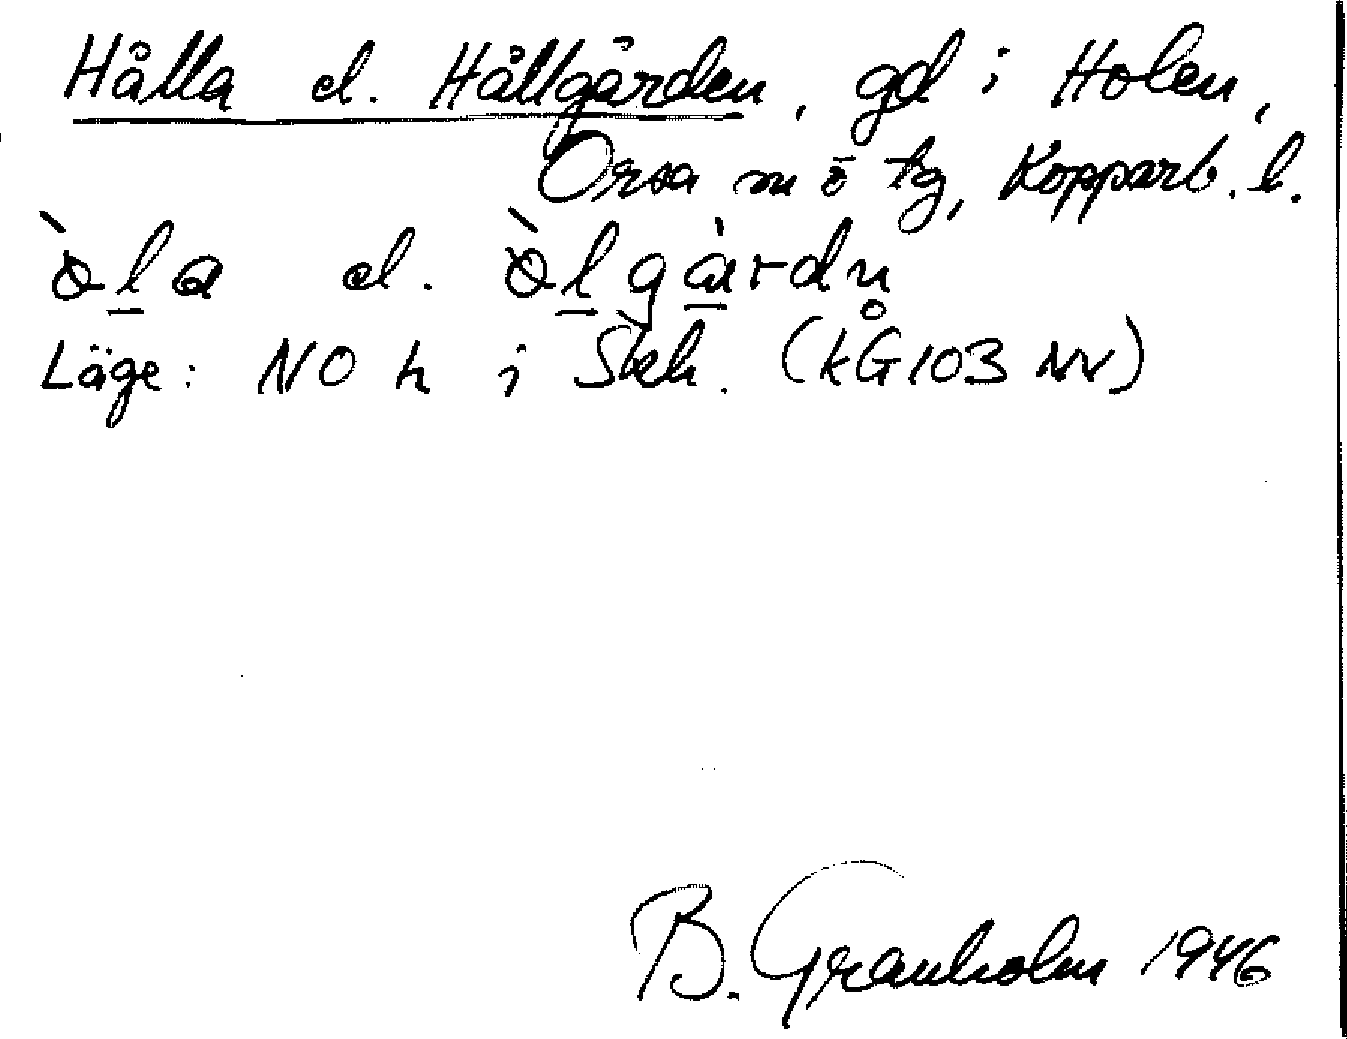 Hålla el. Hållgården, gd i Holen,
Orsa sn ö tg, Kopparb. l.
ò̀l̲a el. ò̀l̲gà̲rdn̥
Läge: NO h i Skh. (kG103 NV)
B. Granholm 1946